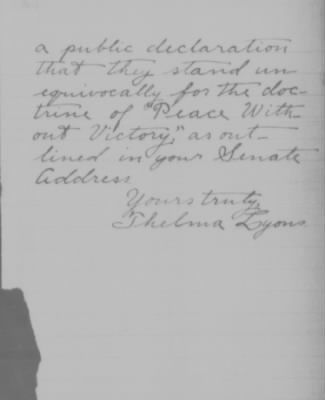 a public declaration
that they stand un
equivocally for the doc-
trine of "Peace With-
out Victory," as out-
lined in your Senate
Address
Yours truly,
Thelma Lyons